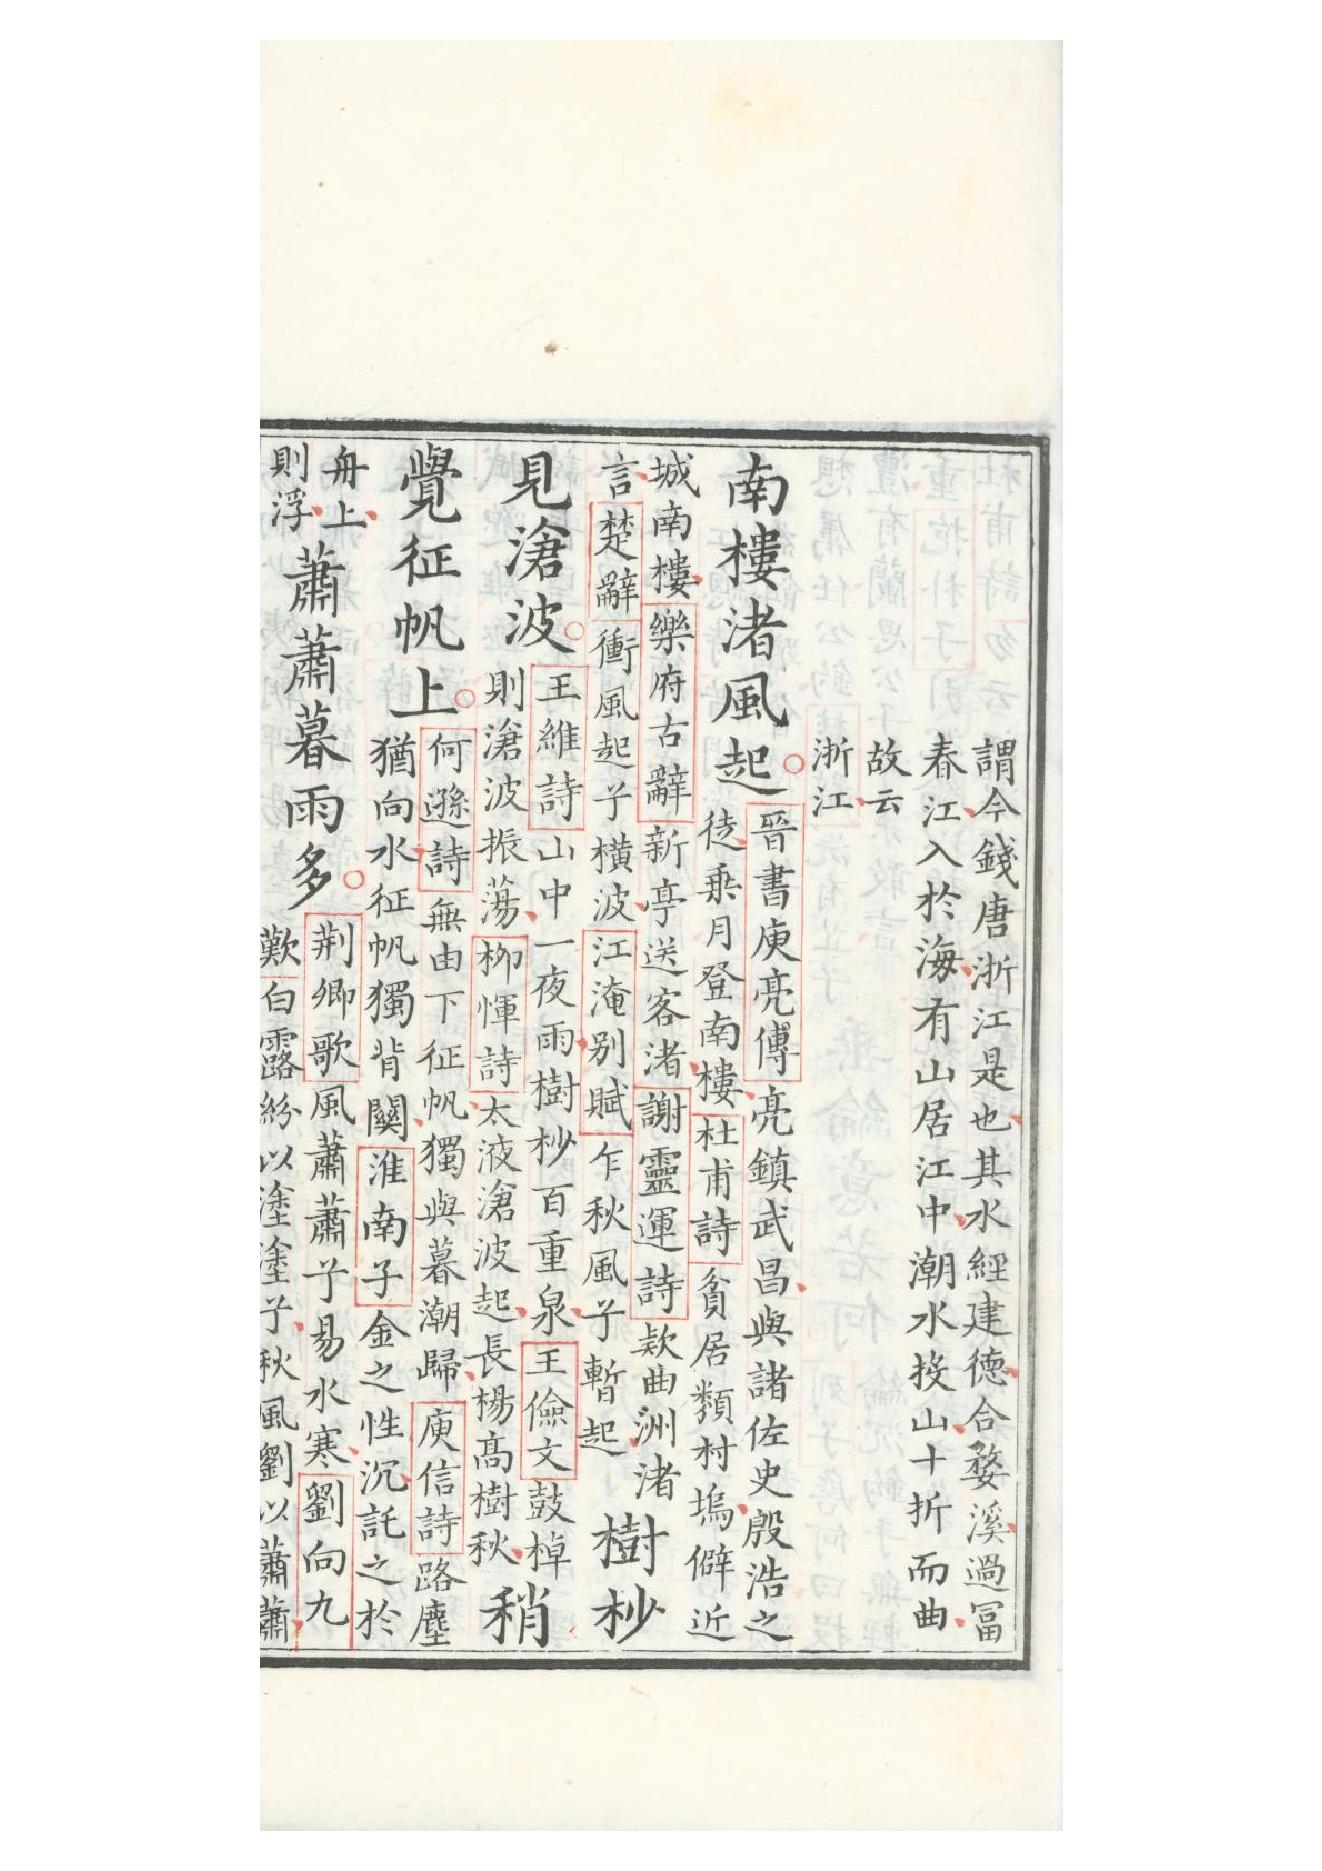 謂今錢唐浙江是也其水經建德合婺溪過冨
春江入於海有山居江中潮水投山十折而曲
故云
浙江
南樓渚風起
晉書庾亮傳亮鎮武昌與諸佐史殷浩之
徒乗月登南樓杜甫詩貧居類村塢僻近
城南樓樂府古辭新亭送客渚謝靈運詩欵曲洲渚
言楚辭衝風起兮橫波江淹别賦乍秋風兮暫起
樹杪
見滄波
王維詩山中一夜雨樹杪百重泉王儉文鼓棹
則滄波振蕩柳惲詩太液滄波起長楊髙樹秋
稍
覺征帆上
何遜詩無由下征帆獨與暮潮歸庾信詩路塵
猶向水征帆獨背關淮南子金之性沉託之於
舟上
則浮
蕭蕭暮雨多
荆卿歌風蕭蕭兮易水寒劉向九
歎白露紛以塗塗兮秋風劉以蕭蕭